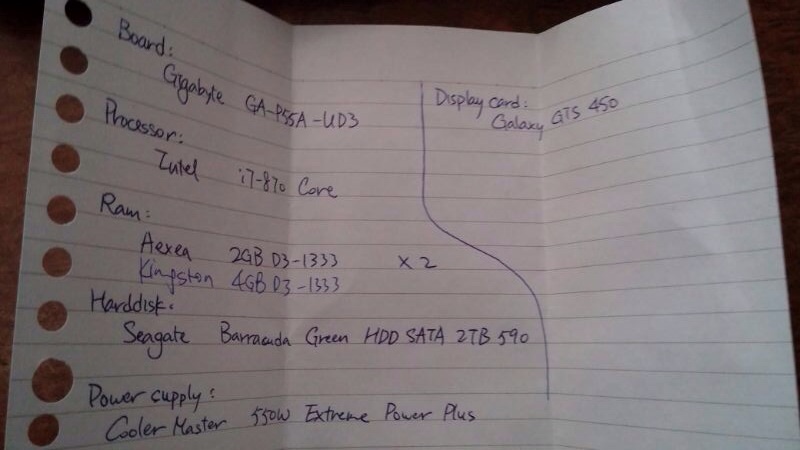 Board:
Gigabyte GA-P55A-UD3
Processor:
Intel i7-870 Core
Ram:
Aexea 2GB D3-1333 x 2
Kingston 4GB D3-1333
Harddisk:
Seagate Barracuda Green HDD SATA 2TB 590
Power supply:
Cooler Master 550W Extreme Power Plus
Display card:
Galaxy GTS 450